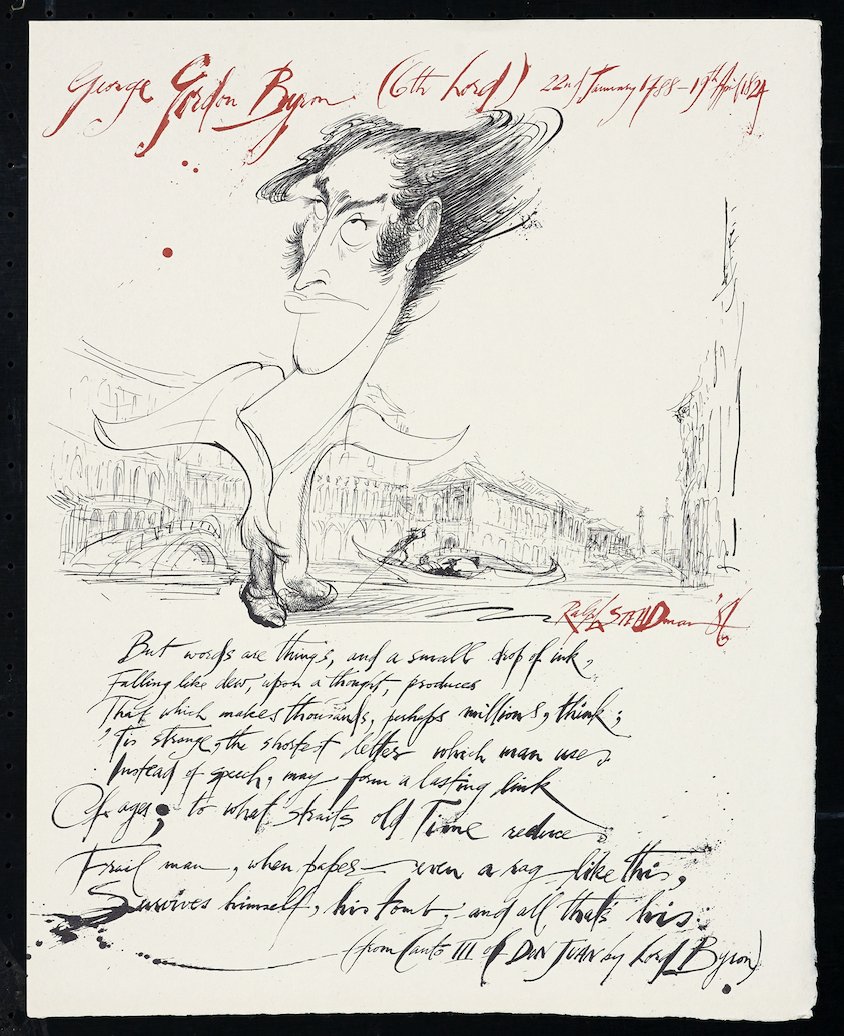 George Gordon Byron (6th Lord) 22nd January 1788 – 19th April 1824
Ralph STEADman '86
But words are things, and a small drop of ink,
Falling like dew, upon a thought, produces
That which makes thousands, perhaps millions, think;
'Tis strange, the shortest letter which man uses
Instead of speech, may form a lasting link
Of ages; to what straits old Time reduces
Frail man, when paper – even a rag like this,
Survives himself, his tomb, and all that's his.
(from Canto III of DON JUAN by Lord Byron)